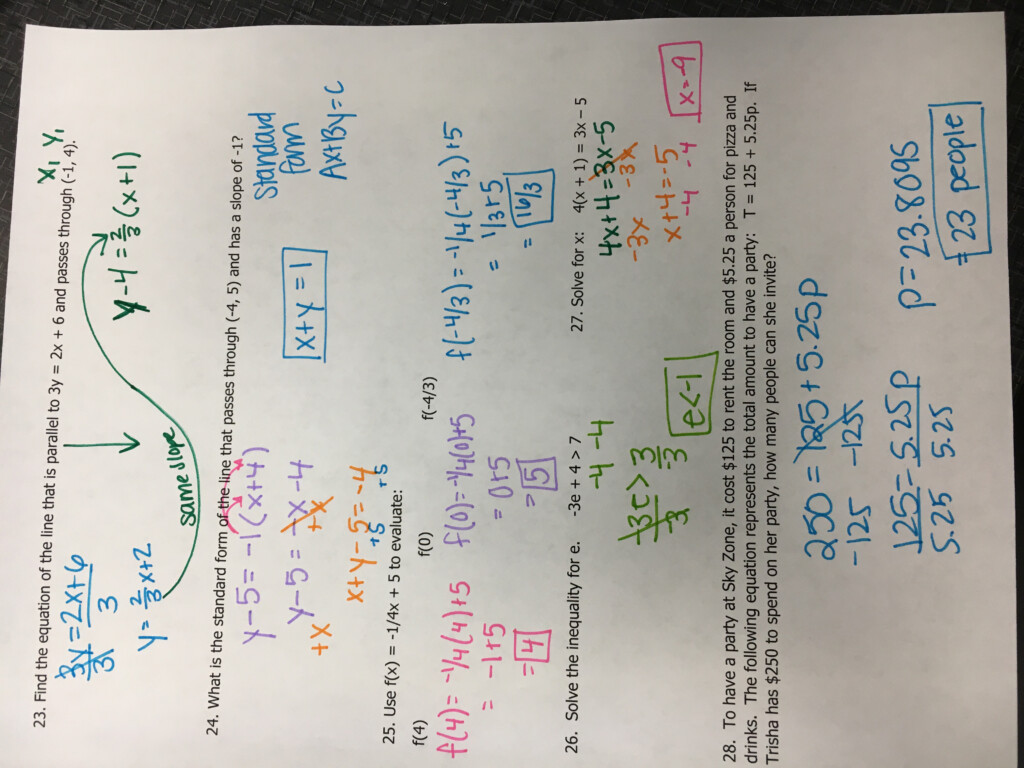 23. Find the equation of the line that is parallel to 3y = 2x + 6 and passes through (-1, 4).
x₁ y₁
3y = 2x + 6
3 3
y = 2/3 x + 2
same slope
y - 4 = 2/3 (x + 1)
24. What is the standard form of the line that passes through (-4, 5) and has a slope of -1?
y - 5 = -1(x + 4)
y - 5 = -x - 4
+x +x
x + y - 5 = -4
+5 +5
x + y = 1
Standard
form
Ax + By = C
25. Use f(x) = -1/4x + 5 to evaluate:
f(4) f(0) f(-4/3)
f(4) = -1/4(4) + 5
= -1 + 5
= 4
f(0) = -1/4(0) + 5
= 0 + 5
= 5
f(-4/3) = -1/4(-4/3) + 5
= 1/3 + 5
= 16/3
26. Solve the inequality for e. -3e + 4 > 7
-4 -4
-3e > 3
-3 -3
e < -1
27. Solve for x: 4(x + 1) = 3x - 5
4x + 4 = 3x - 5
-3x -3x
x + 4 = -5
-4 -4
x = -9
28. To have a party at Sky Zone, it cost $125 to rent the room and $5.25 a person for pizza and
drinks. The following equation represents the total amount to have a party: T = 125 + 5.25p. If
Trisha has $250 to spend on her party, how many people can she invite?
250 = 125 + 5.25p
-125 -125
125 = 5.25p
5.25 5.25
p = 23.8095
= 23 people